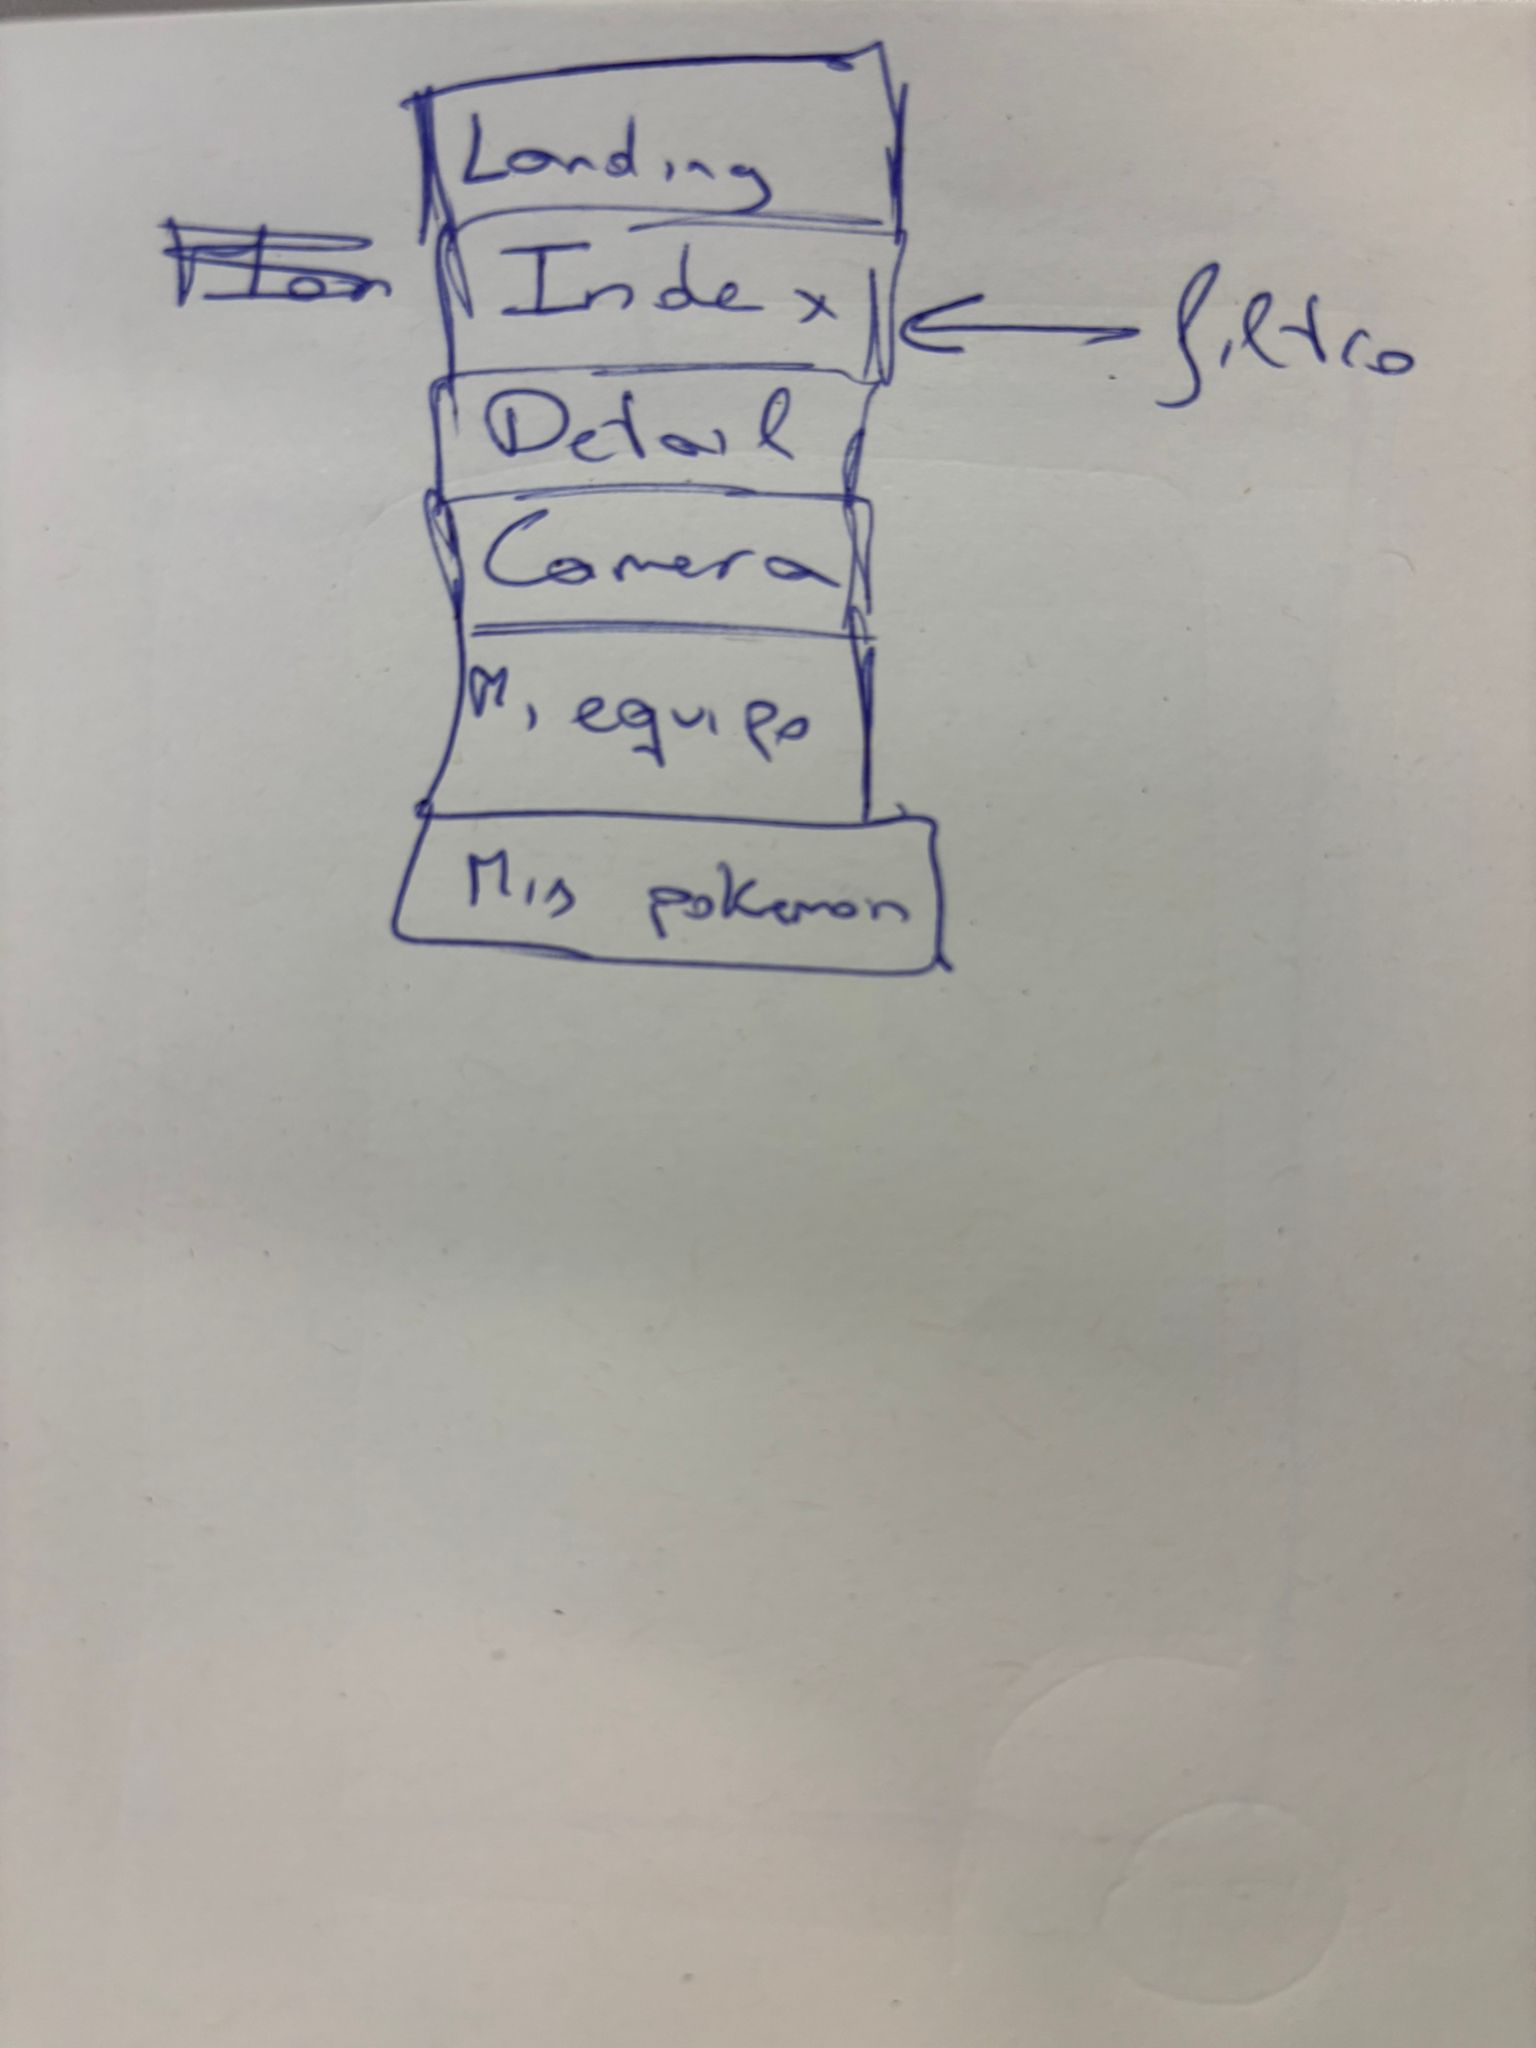 Landing
Index
filtro
Detail
Camera
Mi equipo
Mis pokemon